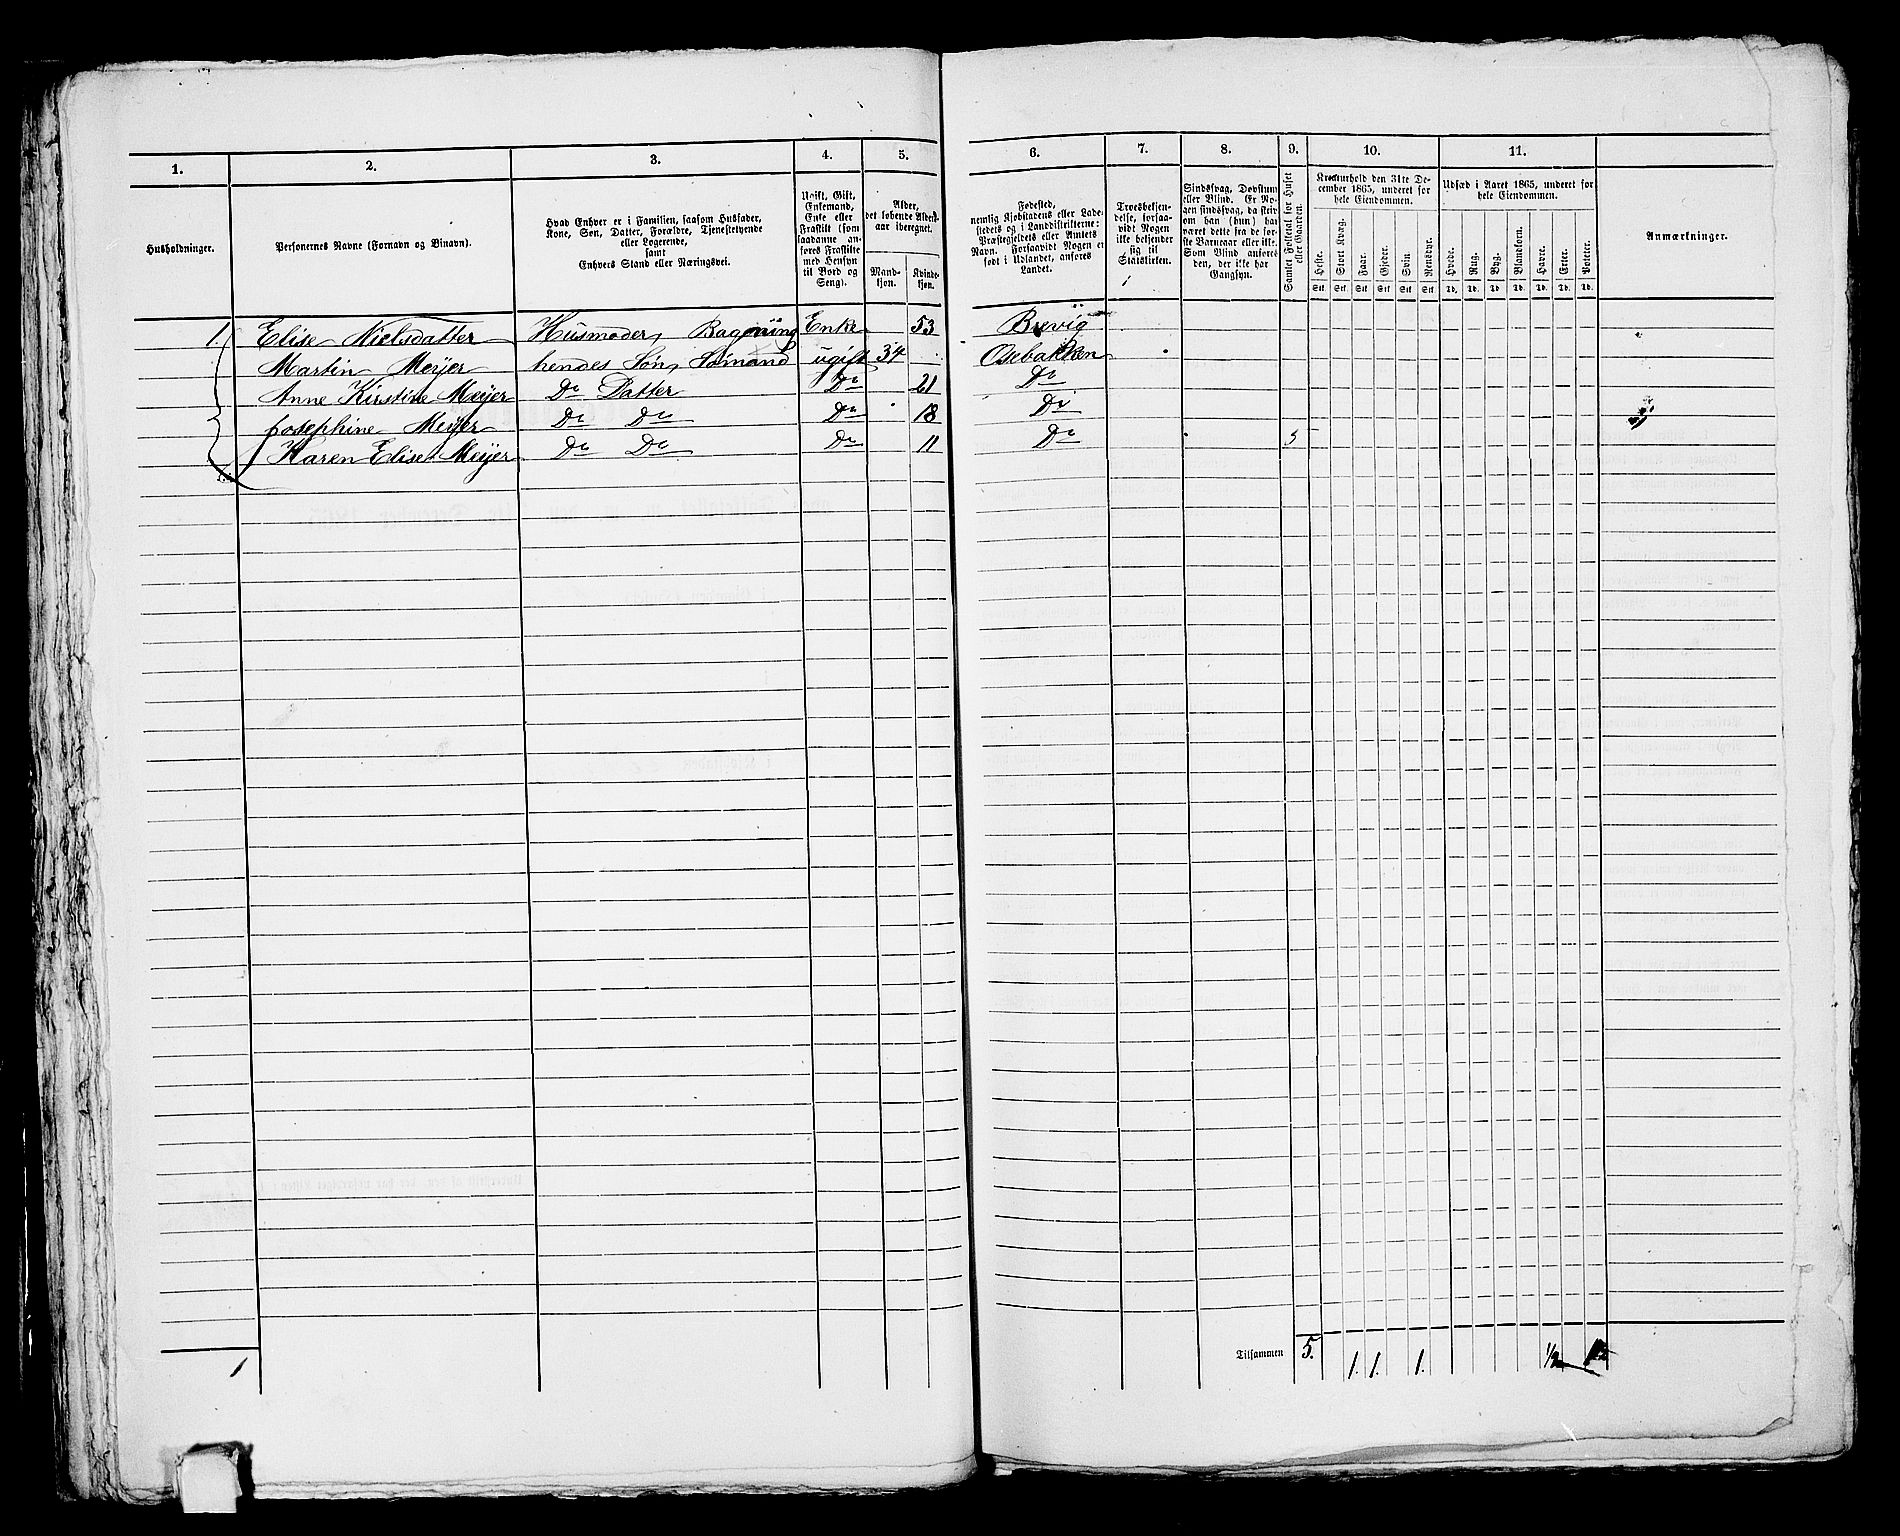 1. 2. 3. 4. 5. 6. 7. 8. 9. 10. 11.
Husholdninger.
Personernes Navne (Fornavn og Binavn).
Hvad Enhver er i Familien, saasom Husfader,
Kone, Søn, Datter, Forældre, Tjenestetyende
eller Logerende,
samt
Enhvers Stand eller Næringsvei.
Ugift, Gift,
Enkemand,
Enke eller
Fraskilt (som
saadanne an-
føres Fraskilte
med Hensyn
til Bord og
Seng).
Alder,
det løbende Alders-
aar iberegnet.
Mand-
kjøn.
Kvinde-
kjøn.
Fødested,
nemlig Kjøbstadens eller Lade-
stedets og i Landdistrikterne:
Præstegjeldets eller Amtets
Navn. Forsaavidt Nogen er
født i Udlandet, anføres
Landet.
Troesbekjen-
delse, forsaa-
vidt Nogen
ikke bekjender
sig til
Statskirken.
Sindssvag, Døvstum
eller Blind. Er No-
gen sindssvag, da skriv
om han (hun) har
været dette fra de før-
ste Barneaar eller ikke.
Som Blind anføres
den, der ikke har
Gangsyn.
Samlet Folketal for Huset
eller Gaarden.
Kreaturhold den 31te De-
cember 1865, underet for
hele Eiendommen.
Heste. Stort Kvæg. Faar. Gjeder. Svin Rensdyr.
Stk. Stk. Stk. Stk. Stk Stk
Udsæd i Aaret 1865, underet for
hele Eiendommen.
Hvede. Rug. Byg. Blandkorn. Havre. Erter. Poteter.
Td. Td. Td. Td. Td. Td. Td.
Anmærkninger.
1. Elise Nielsdatter Husmoder, Enke 53 Brevig
Martin Meijer hendes Søn, Sømand ugift 34 Osebakken
Anne Kirstine Meijer Do Datter Do 21 Do
Josephine Meijer Do Do Do 18 Do
Karen Elise Meijer Do Do Do 11 Do 5
1 Tilsammen 5. 1. 1. 1. 1/2